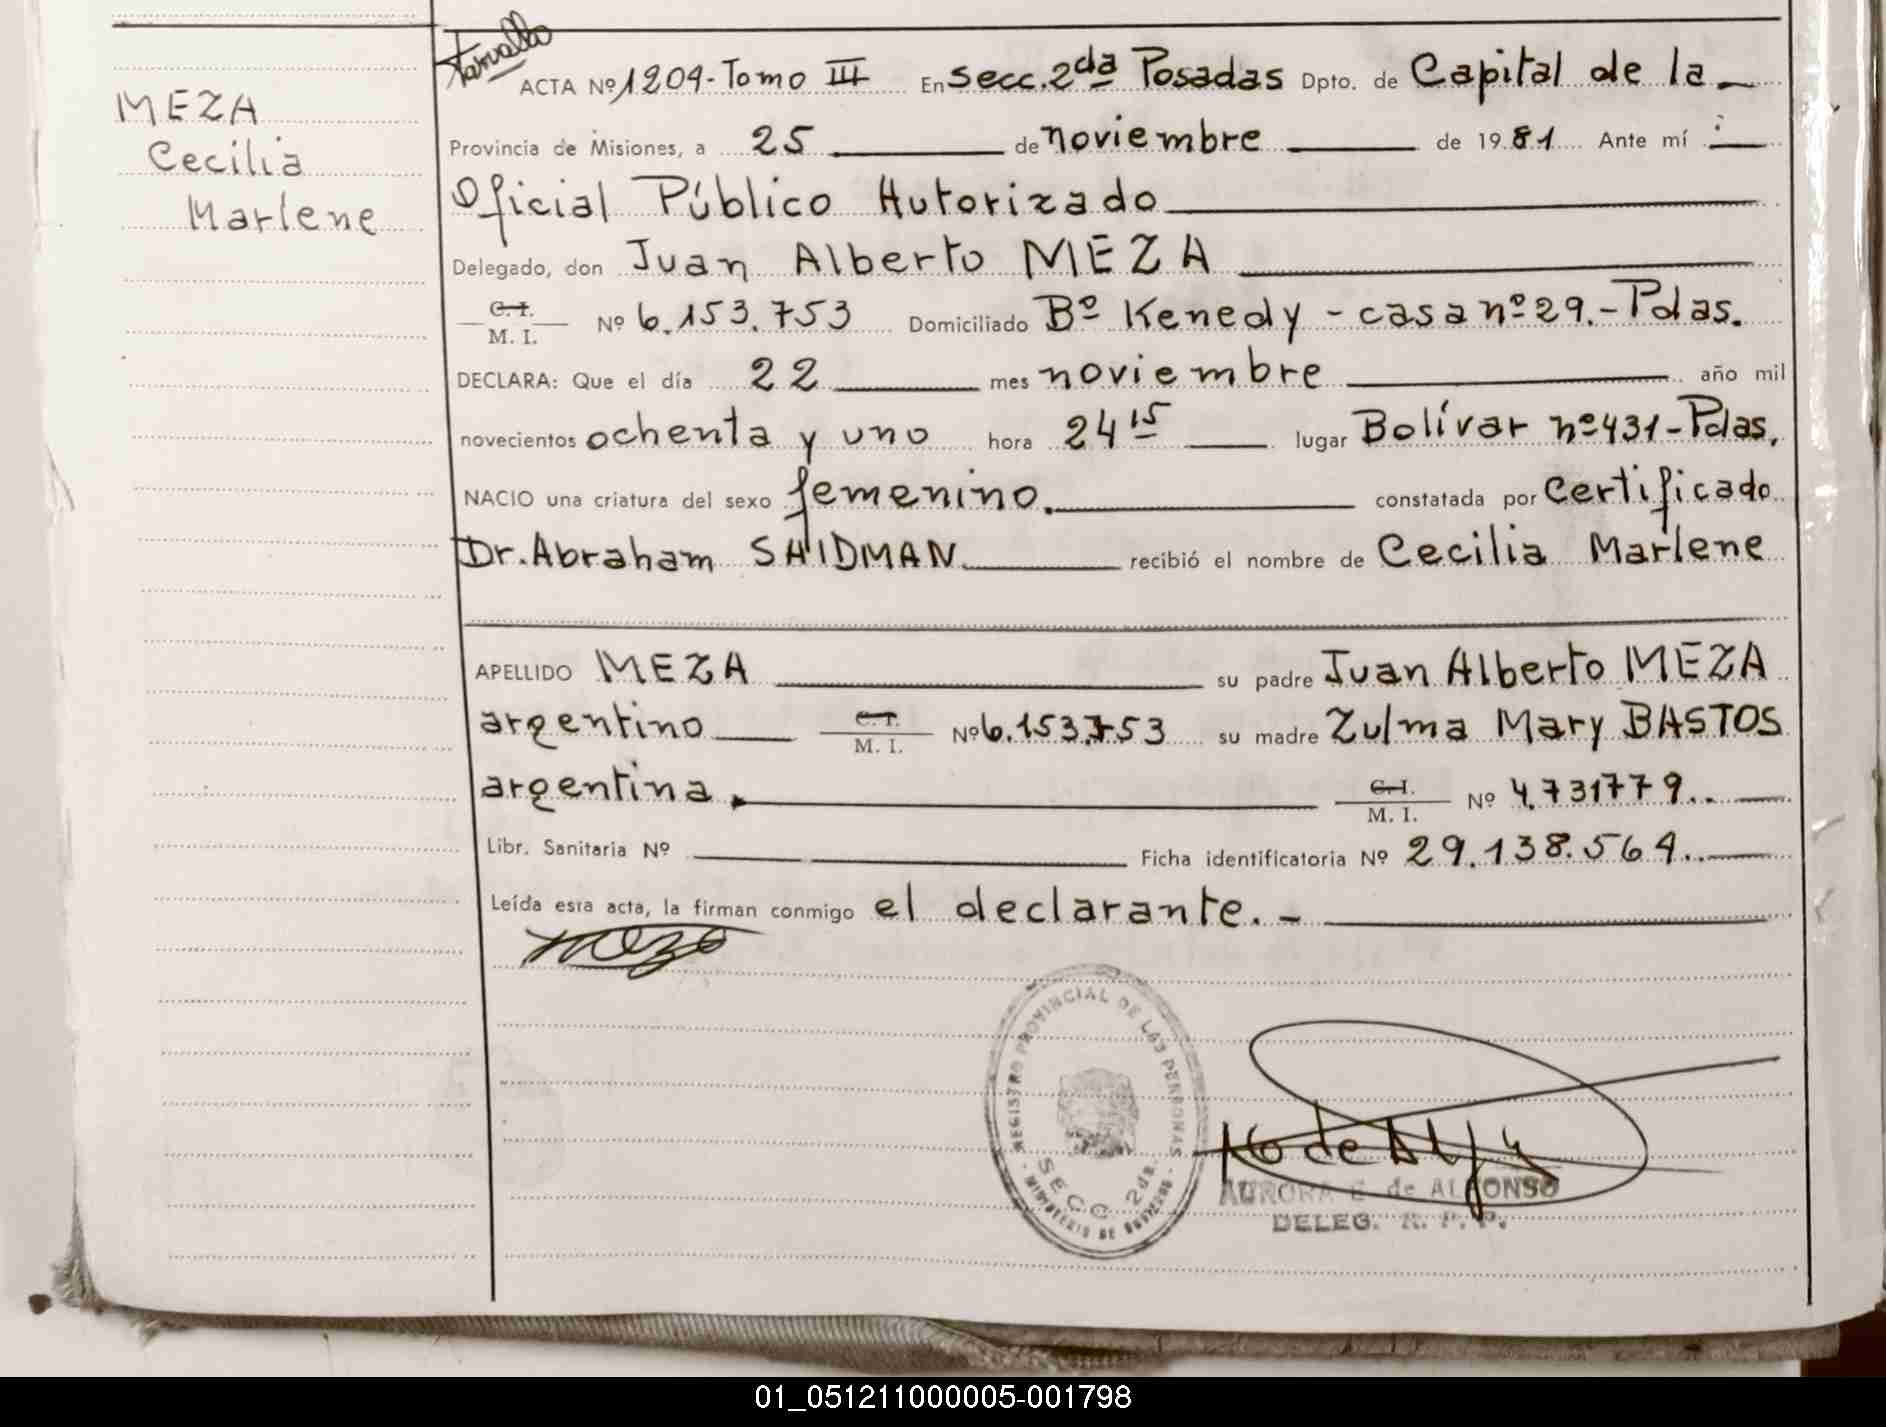 MEZA
Cecilia
Marlene
Tarvallo
ACTA Nº 1209-Tomo III En secc. 2da Posadas Dpto. de Capital de la
Provincia de Misiones, a 25 de noviembre de 1981 Ante mí :
Oficial Público Autorizado
Delegado, don Juan Alberto MEZA
C.I. M.I. Nº 6.153.753 Domiciliado Bº Kenedy - casa nº 29.- Pdas.
DECLARA: Que el día 22 mes noviembre año mil
novecientos ochenta y uno hora 24 15 lugar Bolívar nº 431-Pdas.
NACIO una criatura del sexo femenino. constatada por Certificado
Dr. Abraham SAIDMAN recibió el nombre de Cecilia Marlene
APELLIDO MEZA su padre Juan Alberto MEZA
argentino C.I. M.I. Nº 6.153.753 su madre Zulma Mary BASTOS
argentina. C.I. M.I. Nº 4.731779.
Libr. Sanitaria Nº Ficha identificatoria Nº 29.138.569.
Leída esta acta, la firman conmigo el declarante.-
Meza
REGISTRO PROVINCIAL DE LAS PERSONAS
SECC. 2da.
MINISTERIO DE GOBIERNO
AURORA E. de ALFONSO
DELEG. R. P. P.
01_051211000005-001798